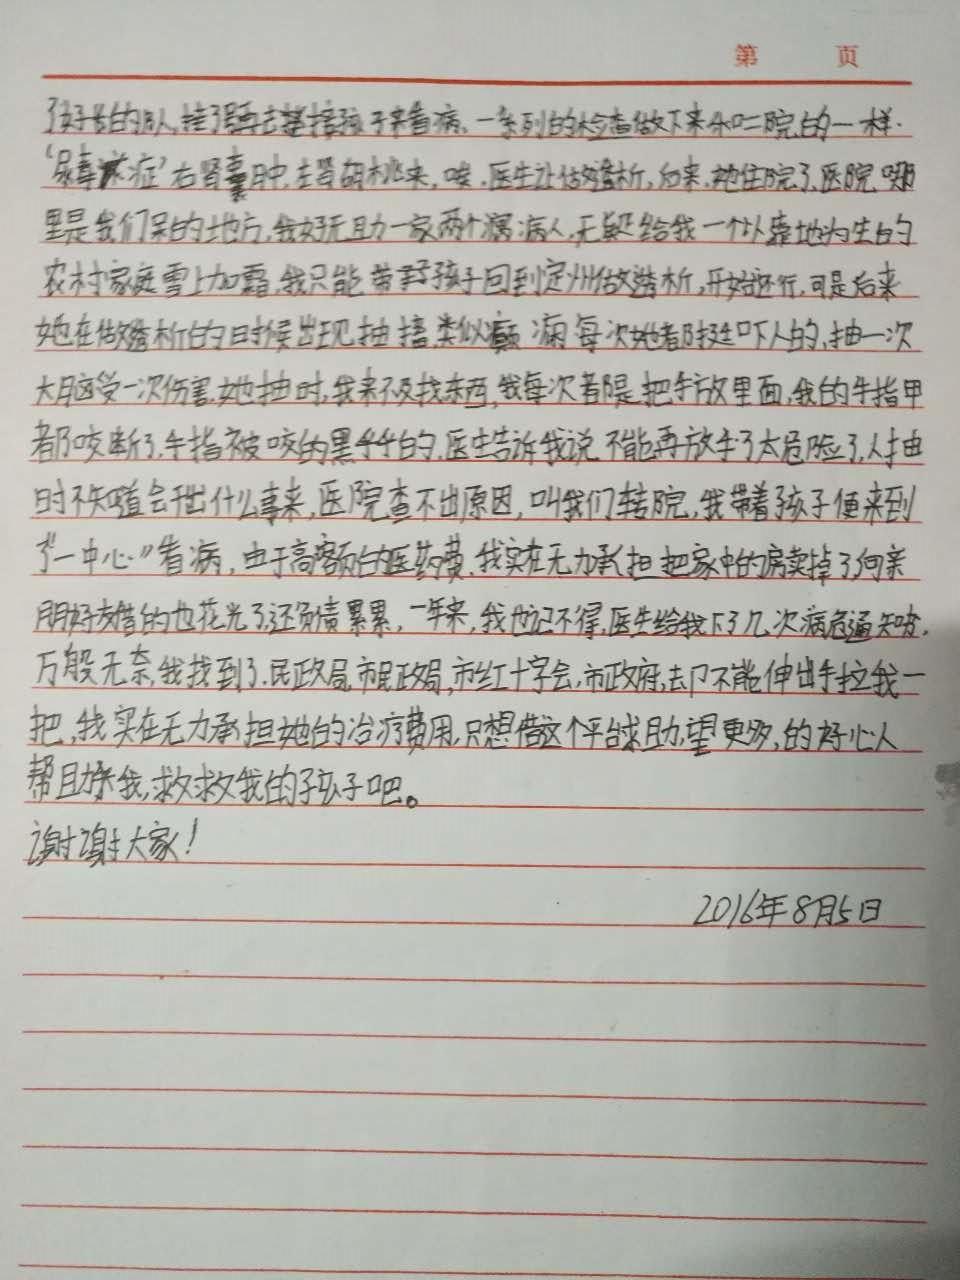 第 页
了好长的队,挂了号再去接孩子来看病、一系列的检查做下来和二院的一样.
‘尿毒症’右肾囊肿,左肾胡桃夹,唉.医生让做透析,后来.她住院了.医院哪
里是我们呆的地方,我好无助一家两个病人,无疑给我一个以靠地为生的
农村家庭雪上加霜,我只能带着孩子回到定州做透析,开始还行,可是后来
她在做透析的时候出现抽搐,类似癫痫,每次她都挺吓人的,抽一次
大脑受一次伤害.她抽时,我来不及找东西,我每次都是把手放里面,我的手指甲
都咬断了,手指被咬的黑乎乎的.医生告诉我说不能再放手了太危险了,人抽
时不知道会干出什么事来,医院查不出原因,叫我们转院,我带着孩子便来到
了“一中心”看病,由于高额的医药费.我实在无力承担把家中的房卖掉了向亲
朋好友借的也花光了,还负债累累,一年来,我也记不得,医生给我下了几次病危通知啦,
万般无奈,我找到了.民政局,市民政局,市红十字会,市政府,都不能伸出手拉我一
把,我实在无力承担她的治疗费用,只想借这个平台求助,望更多,的好心人
帮助我,救救我的孩子吧。
谢谢大家!
2016年8月5日